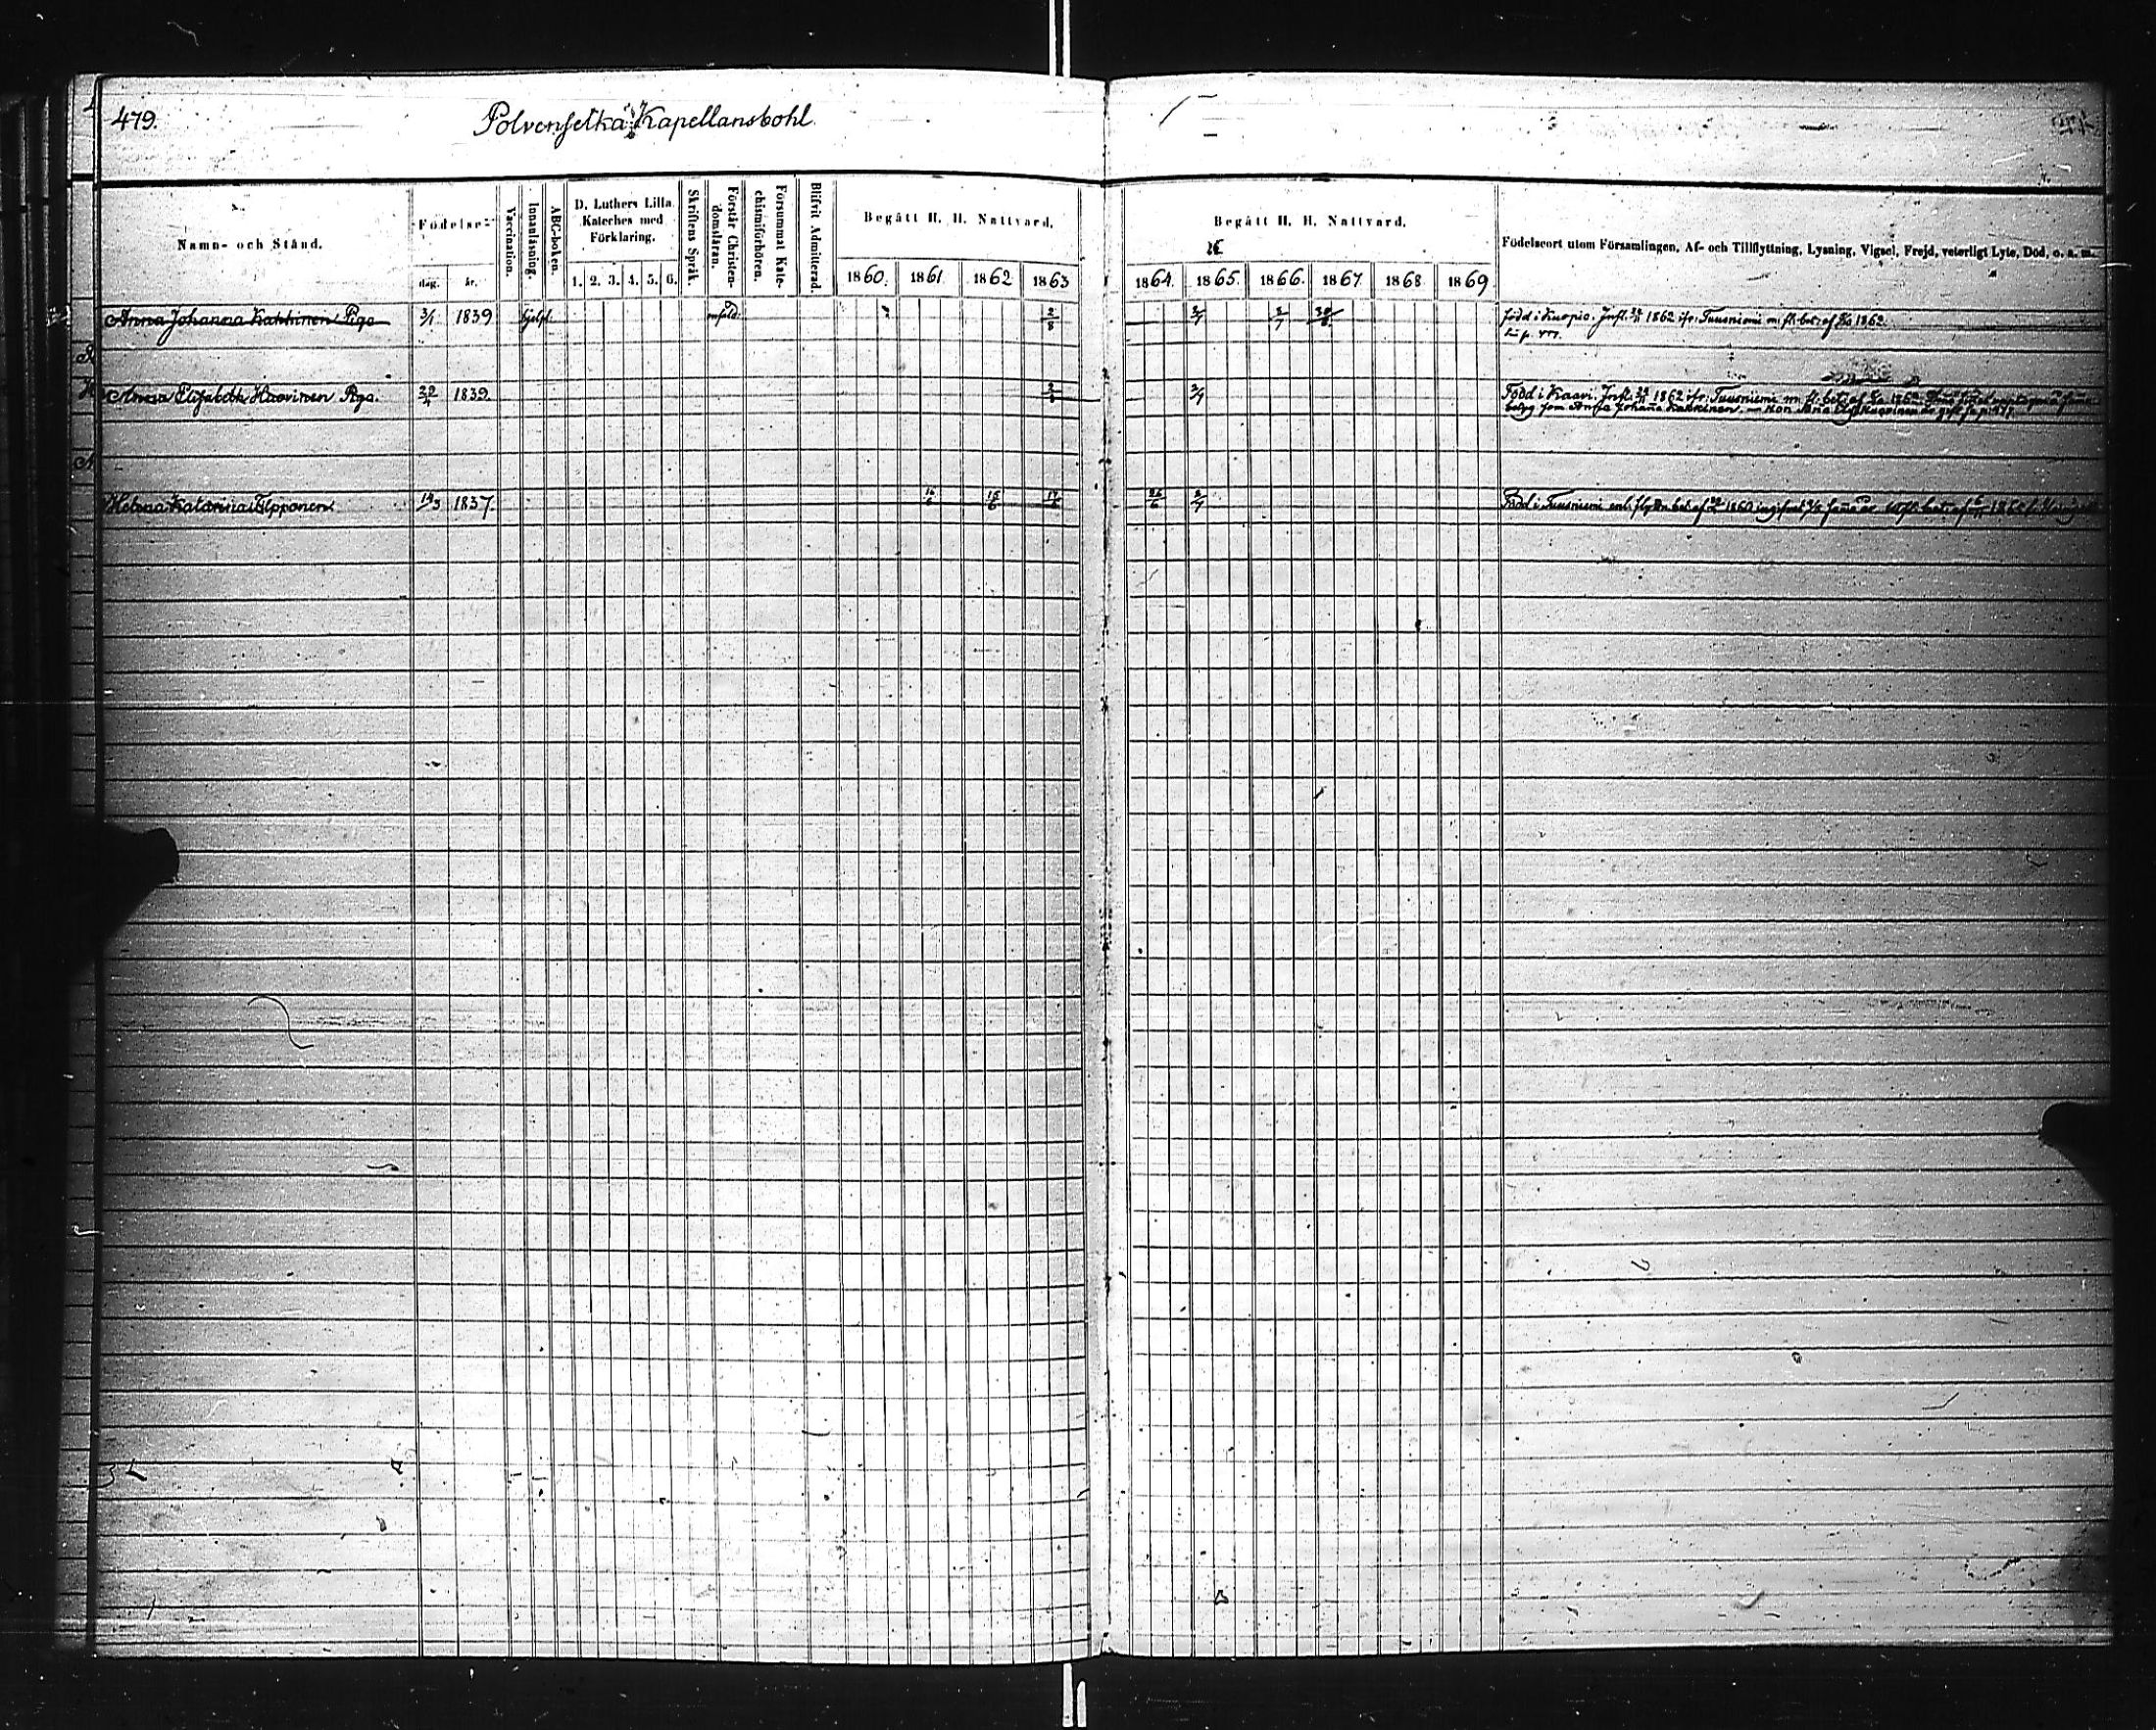 479.
Polvenselkä Kapellansbohl
Namn- och Stånd.
Födelse-
dag.
år.
Vaccination.
Innanläsning.
ABC-boken.
D. Luthers Lilla
Kateches med
Förklaring.
1. 2. 3. 4. 5. 6.
Skriftens Språk.
Förstår Christendomsläran.
Försummat Katechismiförhören.
Blifvit Admitterad.
Begått H. H. Nattvard.
1860. 1861 1862 1863
Begått H. H. Nattvard.
1864. 1865. 1866. 1867. 1868 1869
Födelseort utom Församlingen, Af- och Tillflyttning, Lysning, Vigsel, Frejd, veterligt Lyte, Död, o. s. m.
Anna Johanna Kakkinen Piga 3/1 1839 hjelpl. 2/8 2/7 2/7 född i Kuopio. Infl. 1862 ifr. Tuusniemi m. fl. bet. af 1862.
Anna Elisabeth Huovinen Piga. 22/4 1839. 2/8 2/7 Född i Kaavi. Infl. 1862 ifr. Tuusniemi m. fl. bet. af 1862.
betyg som Anna Johanna Kakkinen. — Hon
Helena Katarina Tipponen 14/3 1837. 16/6 15/6 17/6 26/6 2/7 Född i Tuusniemi enl. bet. af 1860